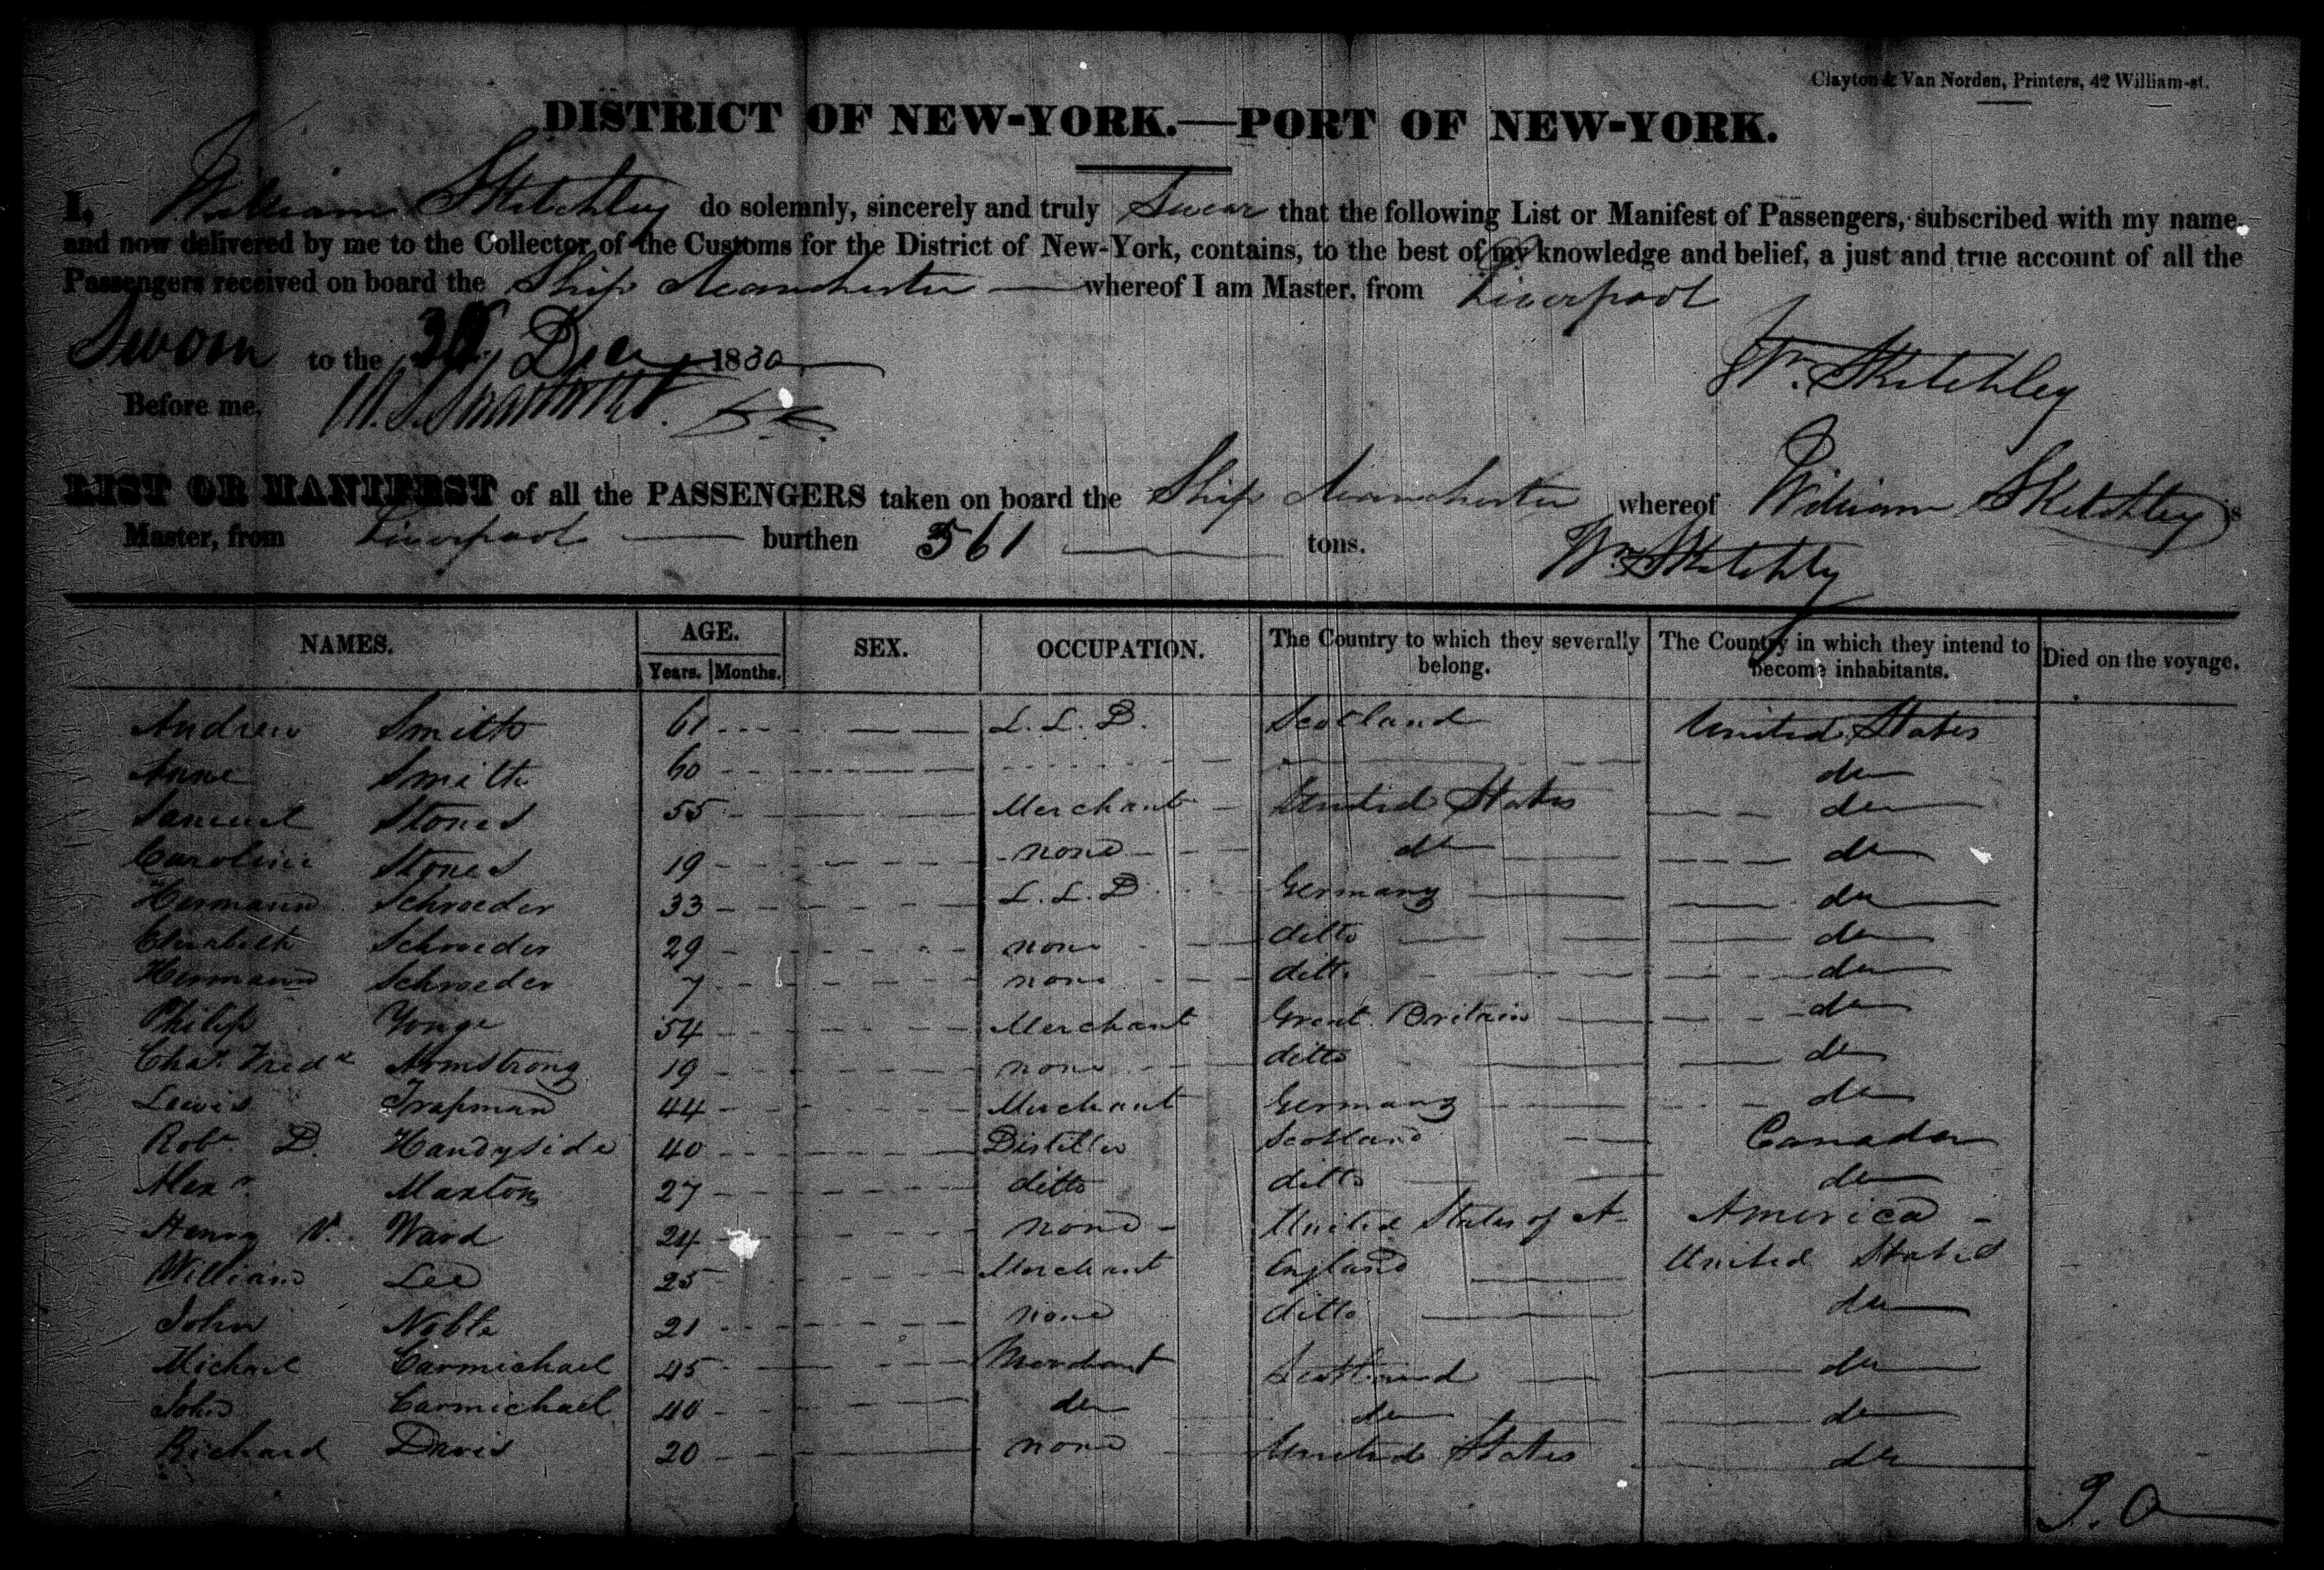 Clayton & Van Norden, Printers, 42 William-st.
DISTRICT OF NEW-YORK.—PORT OF NEW-YORK.
I, William Sketchley do solemnly, sincerely and truly Swear that the following List or Manifest of Passengers, subscribed with my name,
and now delivered by me to the Collector of the Customs for the District of New-York, contains, to the best of my knowledge and belief, a just and true account of all the
Passengers received on board the Ship Manchester whereof I am Master, from Liverpool
Sworn to the Dec 1830
Wm. Sketchley
Before me,
LIST OR MANIFEST of all the PASSENGERS taken on board the Ship Manchester whereof William Sketchley is
Master, from Liverpool burthen 561 tons.
Wm Sketchley
NAMES. AGE. Years. Months. SEX. OCCUPATION. The Country to which they severally belong. The Country in which they intend to become inhabitants. Died on the voyage.
Andrew Smith 61 L. L. D. Scotland United States
Anne Smith 60 do
Samuel Stones 55 Merchant United States do
Caroline Stones 19 none do do
Hermann Schroeder 33 L. L. D Germany do
Elizabeth Schroeder 29 none ditto do
Hermann Schroeder 7 none ditto do
Philip Yonge 54 Merchant Great Britain do
Chas. Fredk Armstrong 19 none ditto do
Lewis Trapman 44 Merchant Germany do
Robt. D. Handyside 40 Distiller Scotland Canada
Alexr. Manton 27 ditto ditto do
Henry Ward 24 none United States of A America
William Lee 25 Merchant England United States
John Noble 21 none ditto do
Michael Carmichael 45 Merchant Scotland do
John Carmichael 40 do do do
Richard Davis 20 none United States do